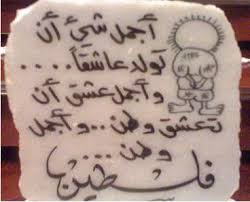 أجمل شئ أن
تولد عاشقاً....
وأجمل عشق أن
تعشق وطن.. وأجمل
وطن...
فلسطين